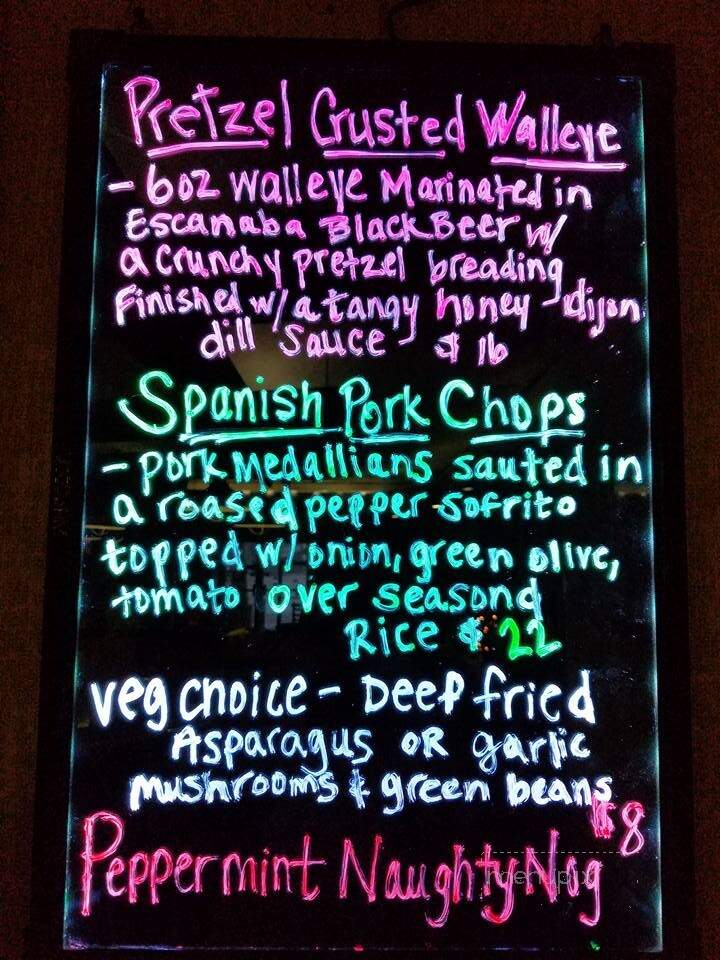 Pretzel Crusted Walleye
- 6oz walleye Marinated in
Escanaba Black Beer w/
a crunchy pretzel breading
Finished w/ a tangy honey dijon
dill Sauce $16
Spanish Pork Chops
- pork Medallians sauted in
a roased pepper sofrito
topped w/ onion, green olive,
tomato over seasond
Rice $22
veg choice - Deep fried
Asparagus OR garlic
mushrooms & green beans
$8
Peppermint Naughty Nog
menupix